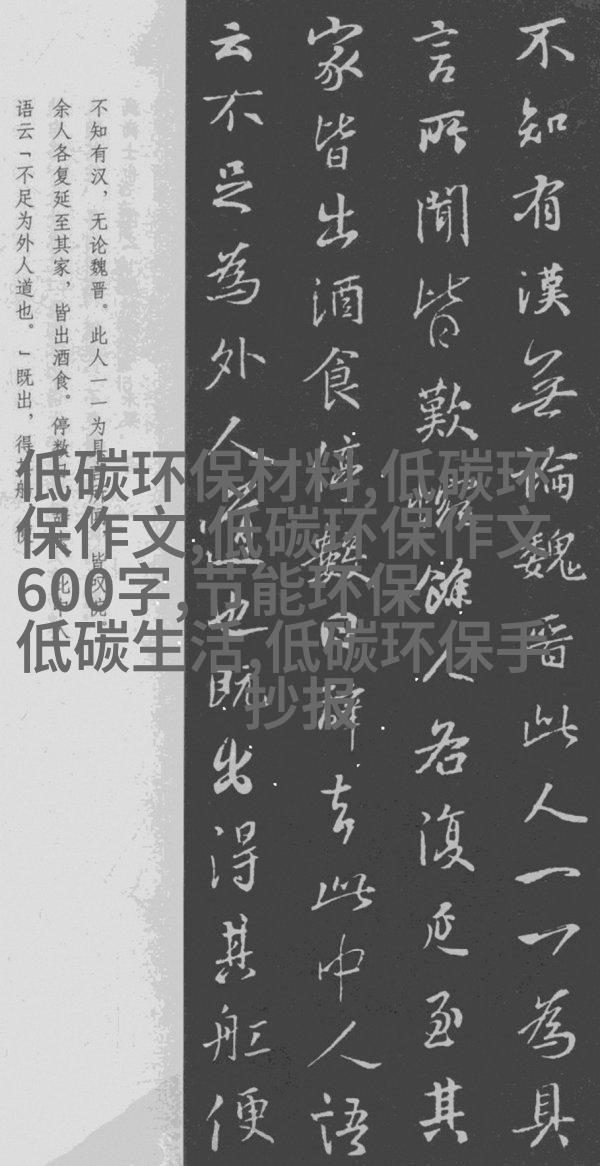 不知有漢無論魏晋此人一一為具
言所聞皆歎惋餘人各復延至其
家皆出酒食停數日辭去此中人語
云不足為外人道也既出得其舡便
不知有汉，无论魏晋。此人一一为具皆叹惋
余人各复延至其家，皆出酒食。停数此中人
语云「不足为外人道也。」既出，得
低碳环保材料,低碳环
保作文,低碳环保作文
600字,节能环保
低碳生活,低碳环保手
抄报